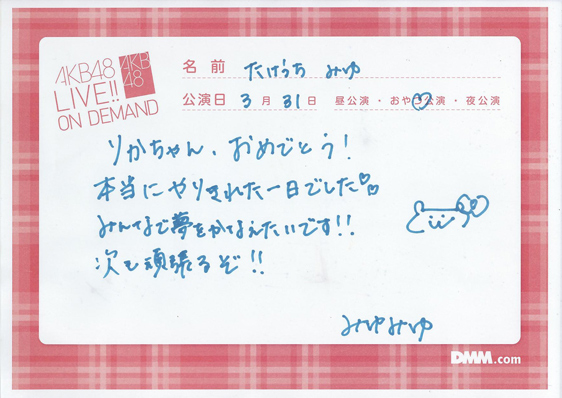 AKB48
LIVE!!
ON DEMAND
AKB
48
名前 たけうち みゆ
公演日 3月31日 昼公演・おやつ公演・夜公演
りかちゃん、おめでとう!
本当にやりきれた一日でした♡♡
みんなで夢をかなえたいです!!
次も頑張るぞ!!
みゆみゆ
DMM.com